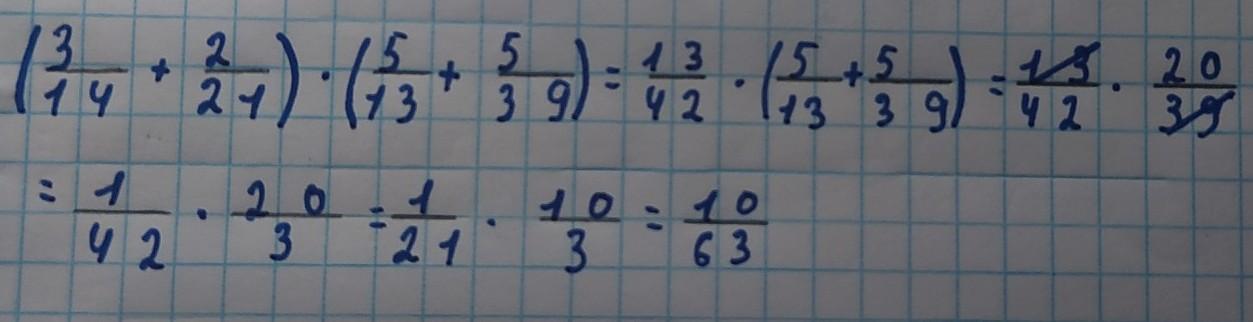 (3/14 + 2/21) · (5/13 + 5/39) = 13/42 · (5/13 + 5/39) = 13/42 · 20/39
= 1/42 · 20/3 = 1/21 · 10/3 = 10/63